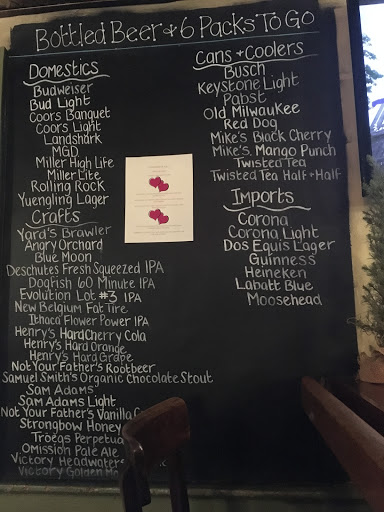 Bottled Beer & 6 Packs To Go
Domestics
Budweiser
Bud Light
Coors Banquet
Coors Light
Landshark
MGD
Miller High Life
Miller Lite
Rolling Rock
Yuengling Lager
Crafts
Yard's Brawler
Angry Orchard
Blue Moon
Deschutes Fresh Squeezed IPA
Dogfish 60 Minute IPA
Evolution Lot #3 IPA
New Belgium Fat Tire
Ithaca Flower Power IPA
Henry's Hard Cherry Cola
Henry's Hard Orange
Henry's Hard Grape
Not Your Father's Rootbeer
Samuel Smith's Organic Chocolate Stout
Sam Adams
Sam Adams Light
Not Your Father's Vanilla
Strongbow Honey
Troegs Perpetual
Omission Pale Ale
Victory Headwaters
Victory Golden
Cans + Coolers
Busch
Keystone Light
Pabst
Old Milwaukee
Red Dog
Mike's Black Cherry
Mike's Mango Punch
Twisted Tea
Twisted Tea Half + Half
Imports
Corona
Corona Light
Dos Equis Lager
Guinness
Heineken
Labatt Blue
Moosehead